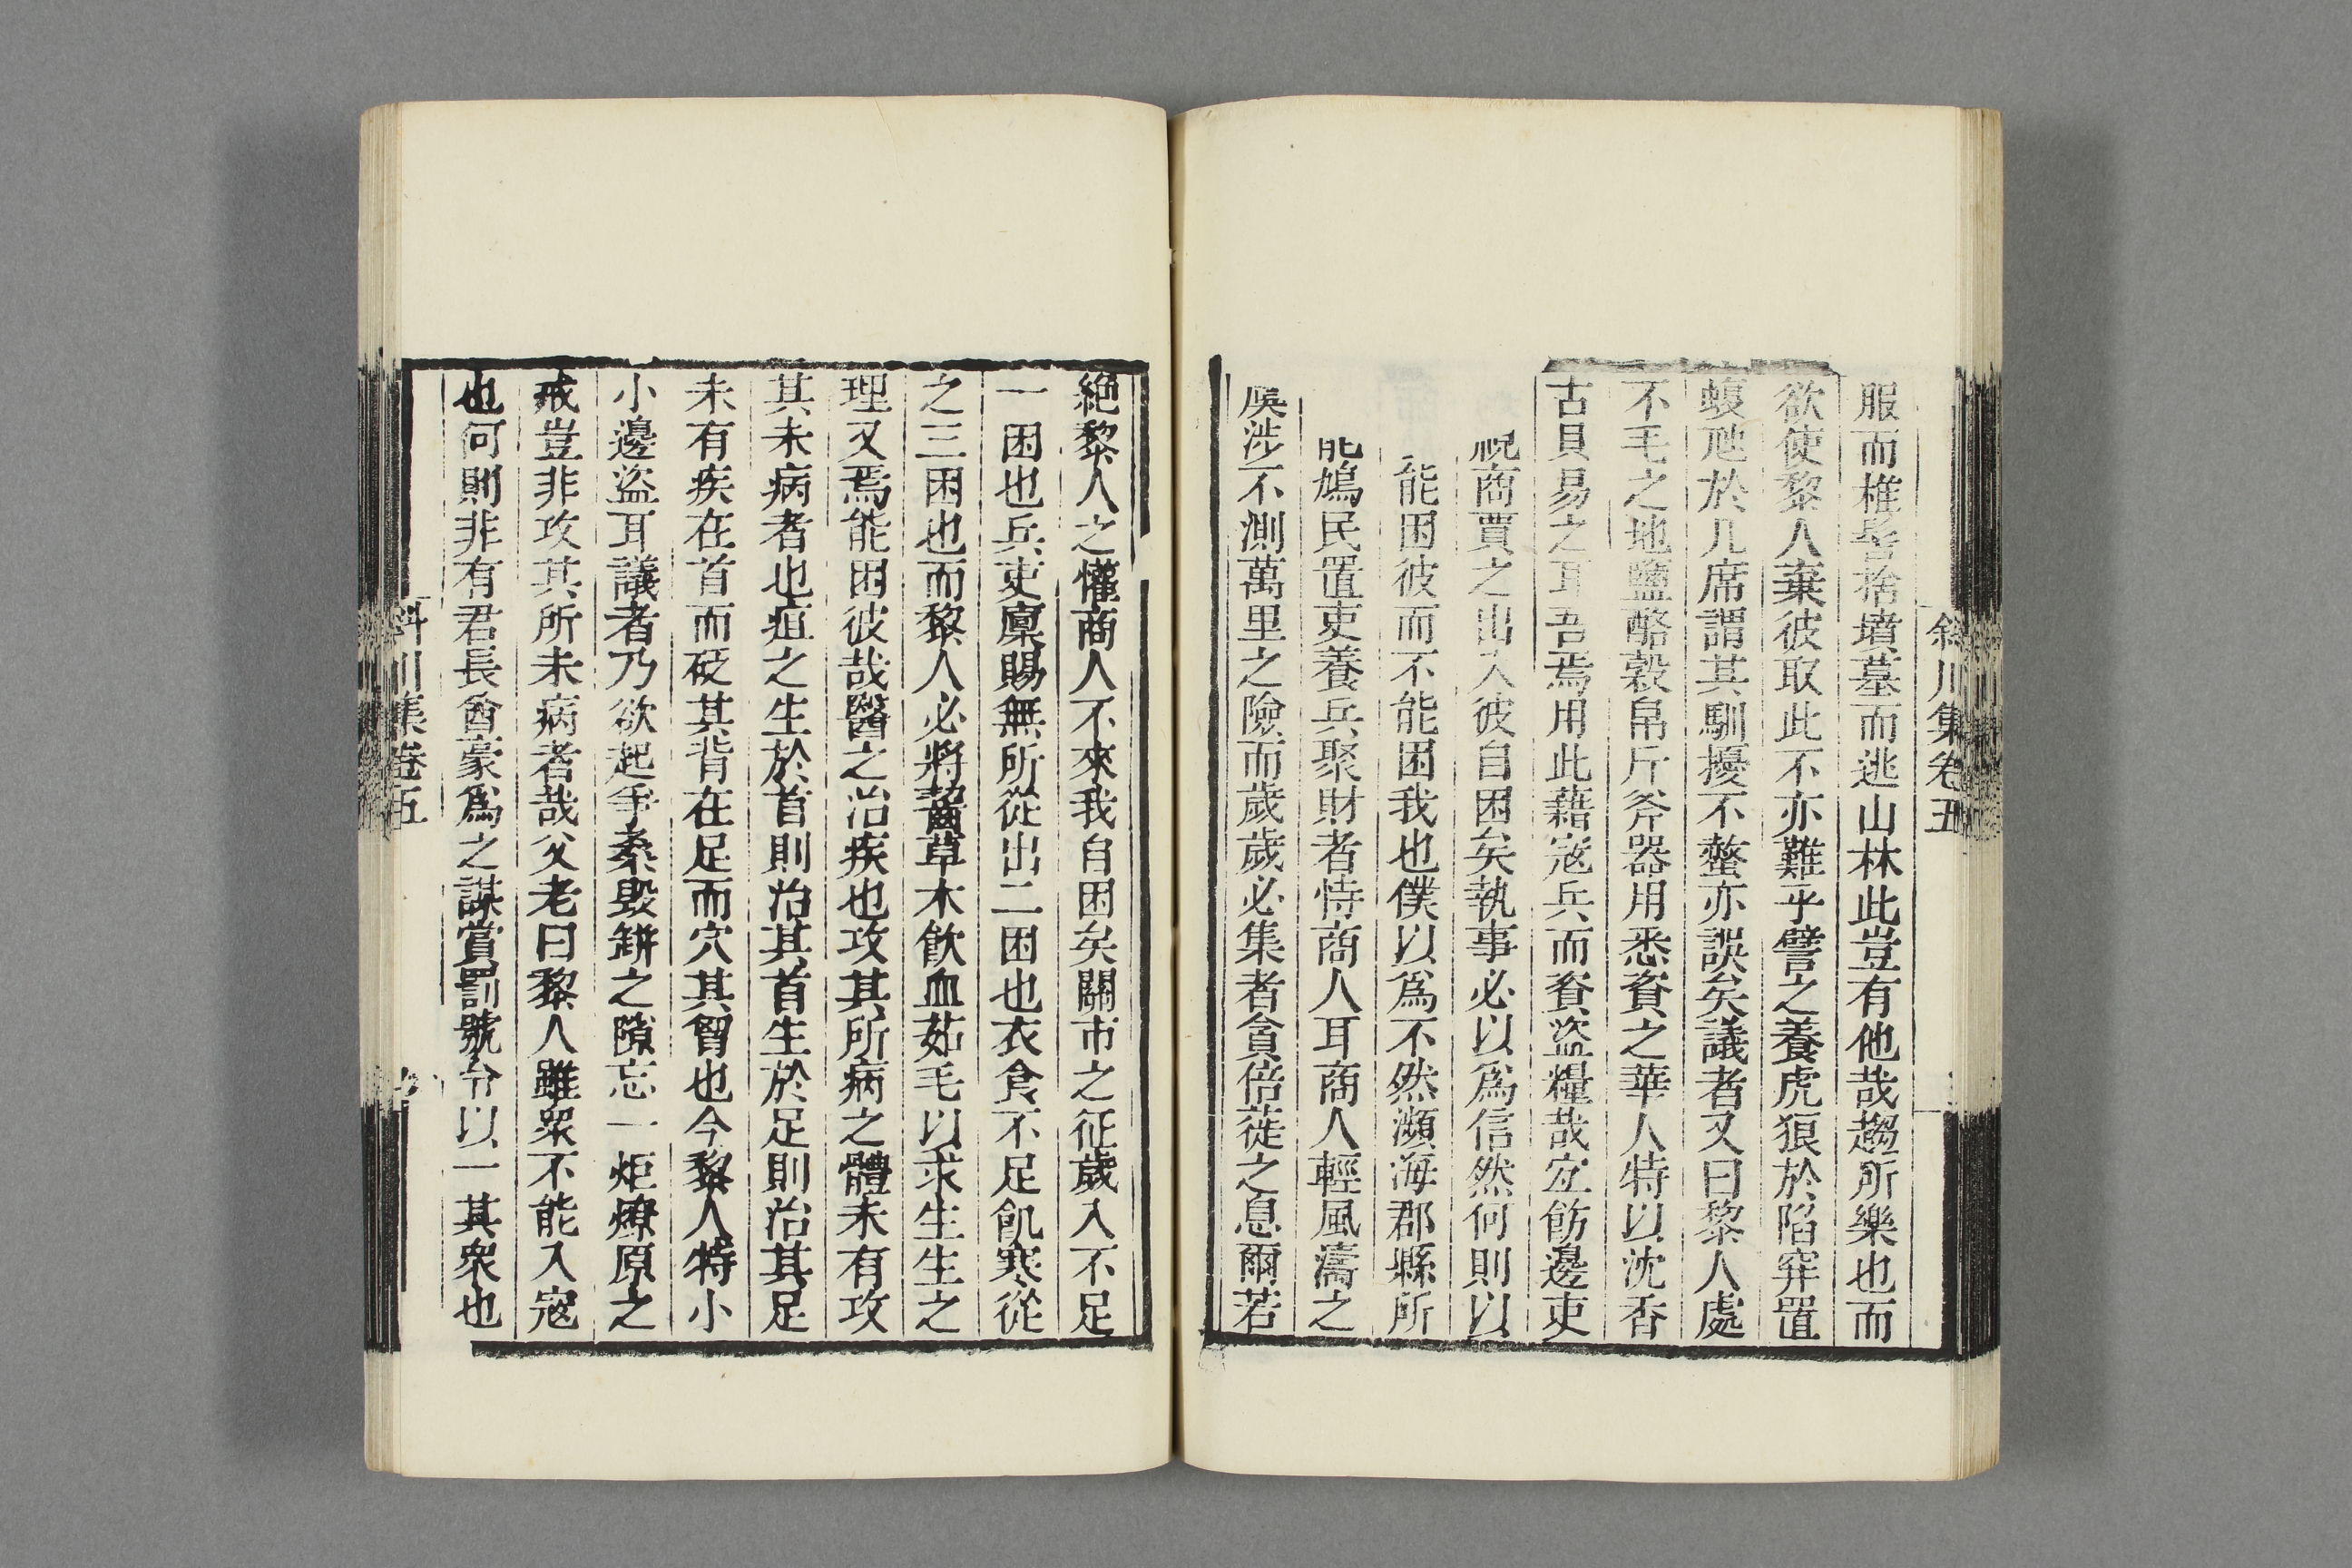 斜川集卷五
服而椎髻捨墳墓而逃山林此豈有他哉趨所樂也而
欲使黎人棄彼取此不亦難乎譬之養虎狼於陷穽置
蝮虺於几席謂其馴擾不螫亦誤矣議者又曰黎人處
不毛之地鹽酪穀帛斤斧器用悉資之華人特以沈香
古貝易之耳吾焉用此藉寇兵而資盜糧哉宜飭邊吏
商賈之出入彼自困矣執事必以爲信然何則以
能困彼而不能困我也僕以爲不然瀕海郡縣所
能鳩民置吏養兵聚財者恃商人耳商人輕風濤之
虞涉不測萬里之險而歲歲必集者貪倍蓰之息爾若
絶黎人之懽商人不來我自困矣關市之征歲入不足
一困也兵吏廩賜無所從出二困也衣食不足飢寒從
之三困也而黎人必將齧草木飲血茹毛以求生生之
理又焉能困彼哉醫之治疾也攻其所病之體未有攻
其未病者也疽之生於首則治其首生於足則治其足
未有疾在首而砭其背在足而穴其胷也今黎人特小
小邊盜耳議者乃欲起爭桑毀缾之隙忘一炬燎原之
戒豈非攻其所未病者哉父老曰黎人雖衆不能入寇
也何則非有君長酋豪爲之謀賞罰號令以一其衆也
斜川集卷五